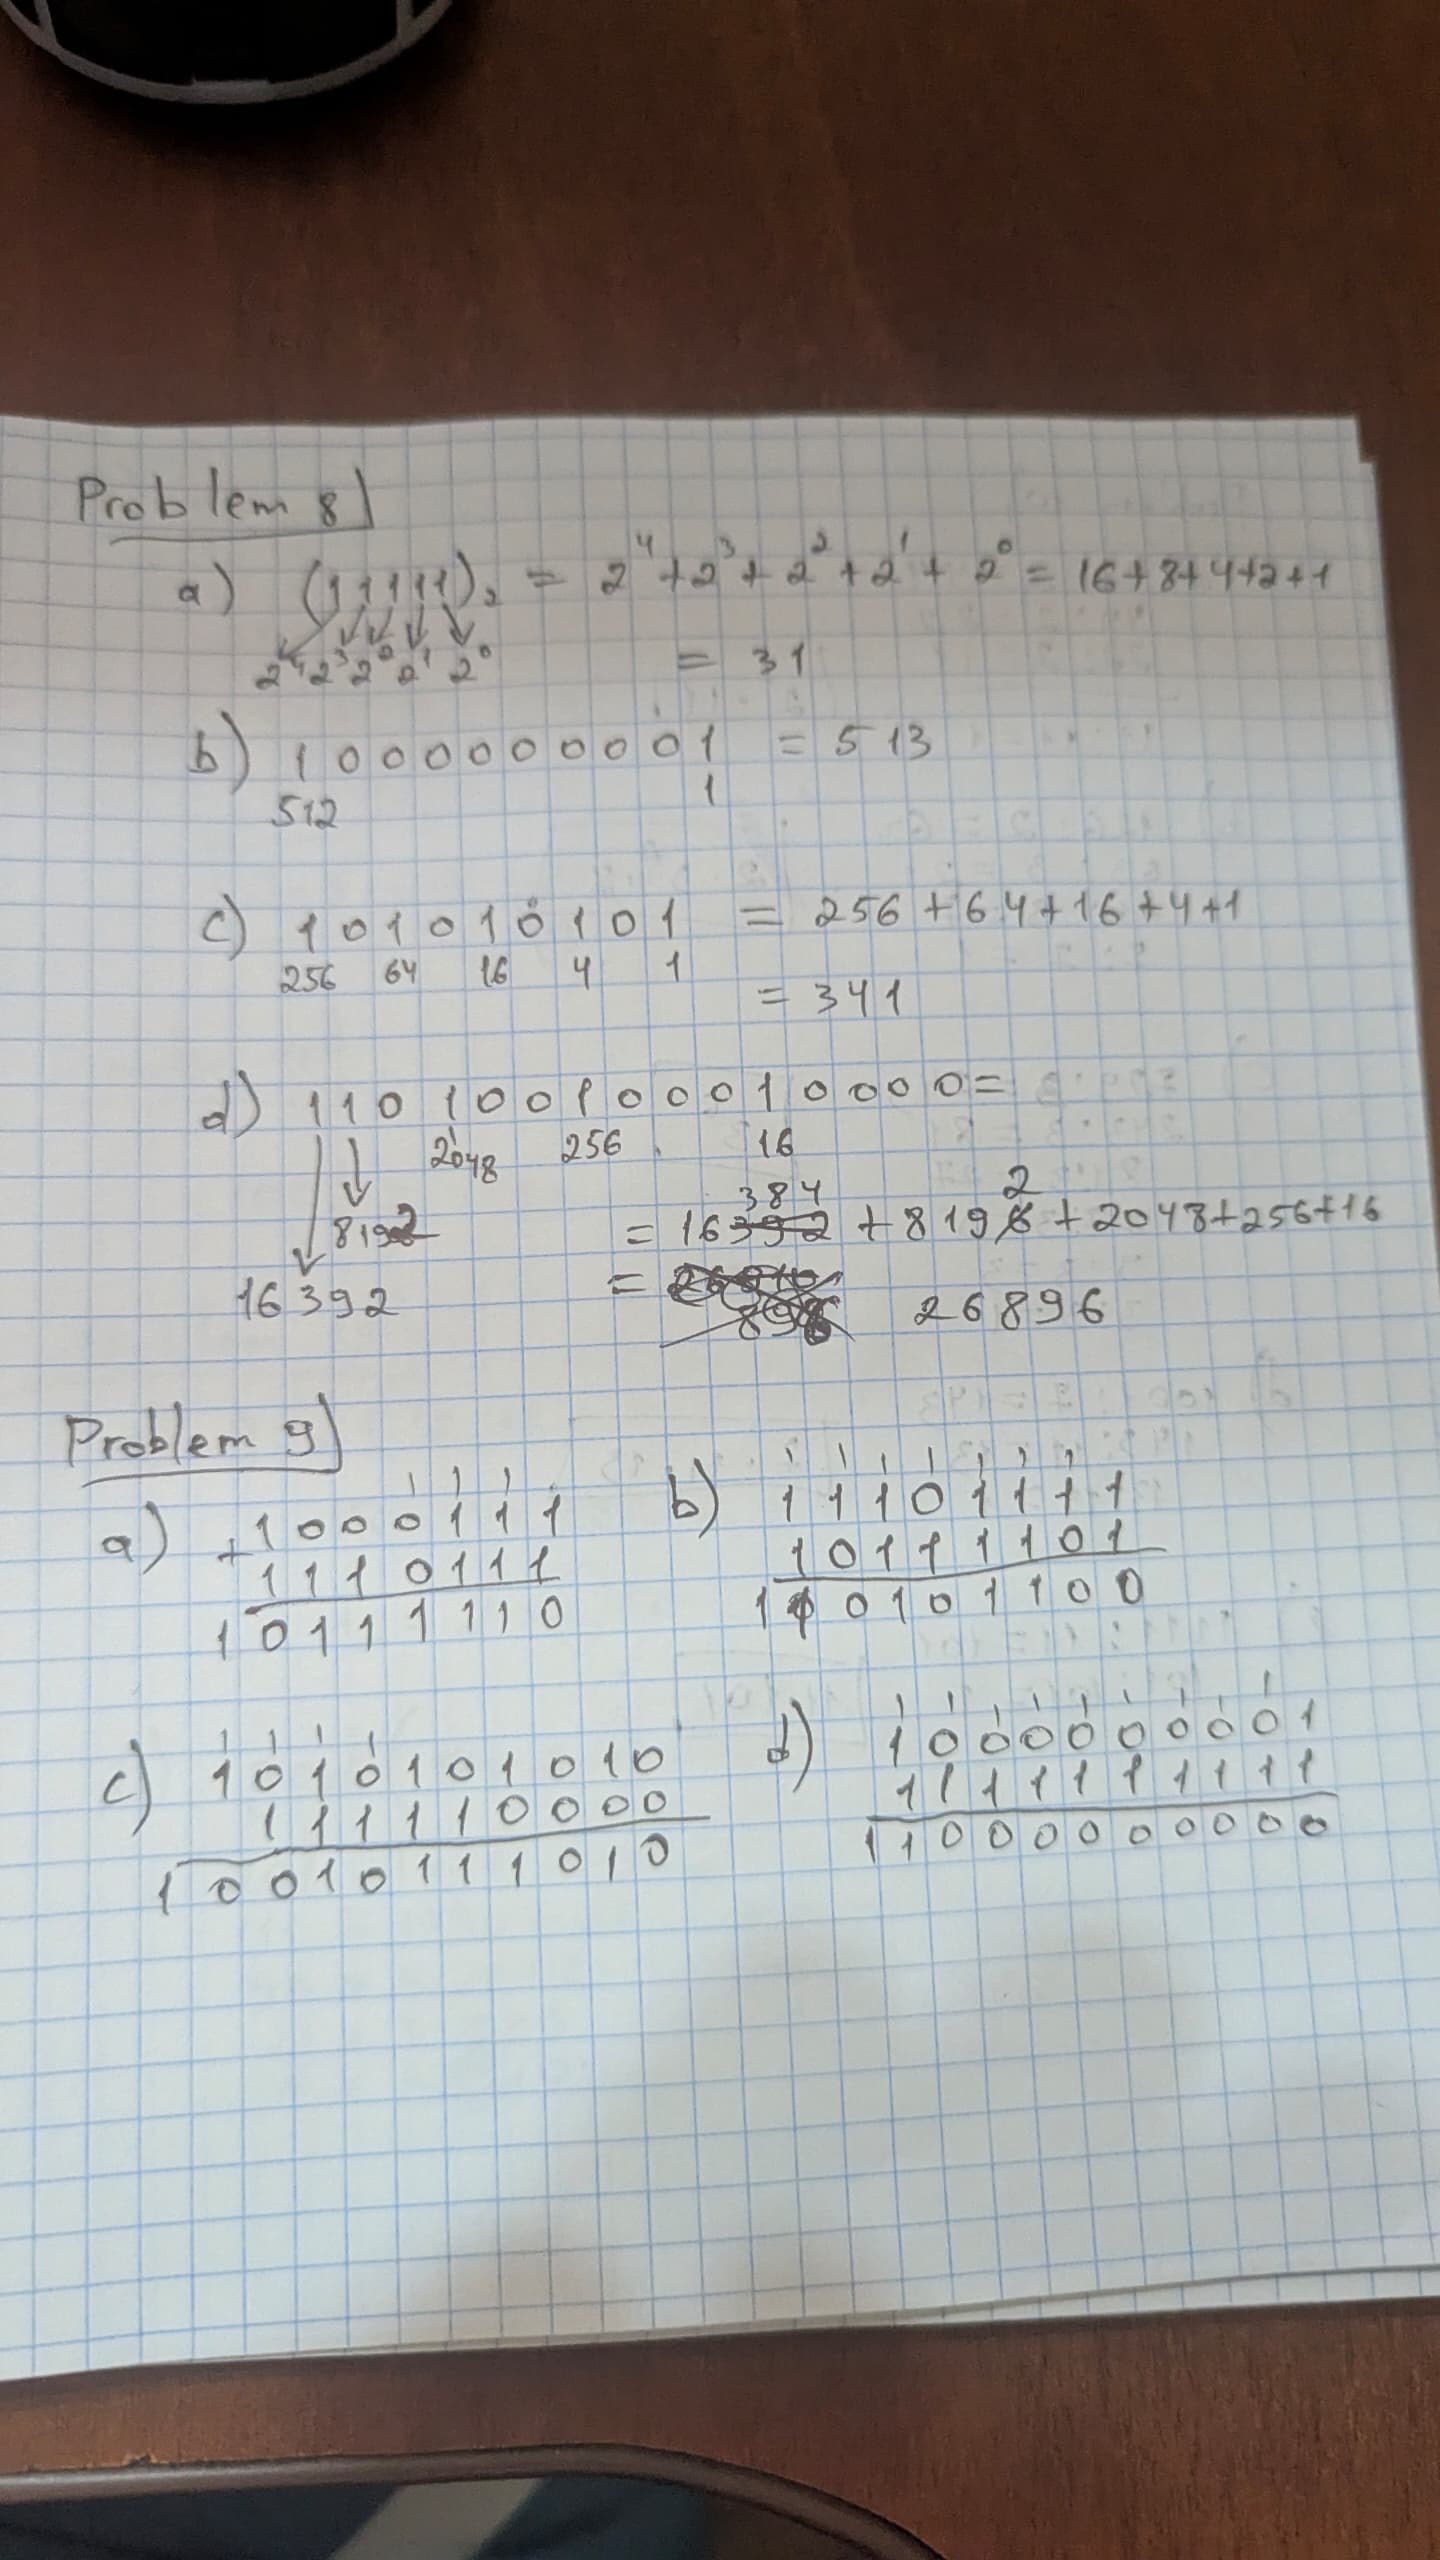 Problem 8)
a) (11111)₂ = 2⁴+2³+2²+2¹+2⁰ = 16+8+4+2+1
2⁴ 2³ 2⁰ 2¹ 2⁰ = 31
b) 1 0 0 0 0 0 0 0 0 1 = 513
512 1
c) 1 0 1 0 1 0 1 0 1 = 256+64+16+4+1
256 64 16 4 1
= 341
d) 1 1 0 1 0 0 1 0 0 0 1 0 0 0 0 =
2048 256 16
384 2
8192 = 16392 + 8196 + 2048+256+16
16392 = 26896
Problem 9)
1 1 1
a) + 1 0 0 0 1 1 1
1 1 1 0 1 1 1
1 0 1 1 1 1 1 0
1 1 1 1 1 1 1
b) 1 1 1 0 1 1 1 1
1 0 1 1 1 1 0 1
1 1 0 1 0 1 1 0 0
1 1 1 1
c) 1 0 1 0 1 0 1 0 1 0
1 1 1 1 1 0 0 0 0
1 0 0 1 0 1 1 1 0 1 0
1 1 1 1 1 1 1 1 1
d) 1 0 0 0 0 0 0 0 0 1
1 1 1 1 1 1 1 1 1 1
1 1 0 0 0 0 0 0 0 0 0